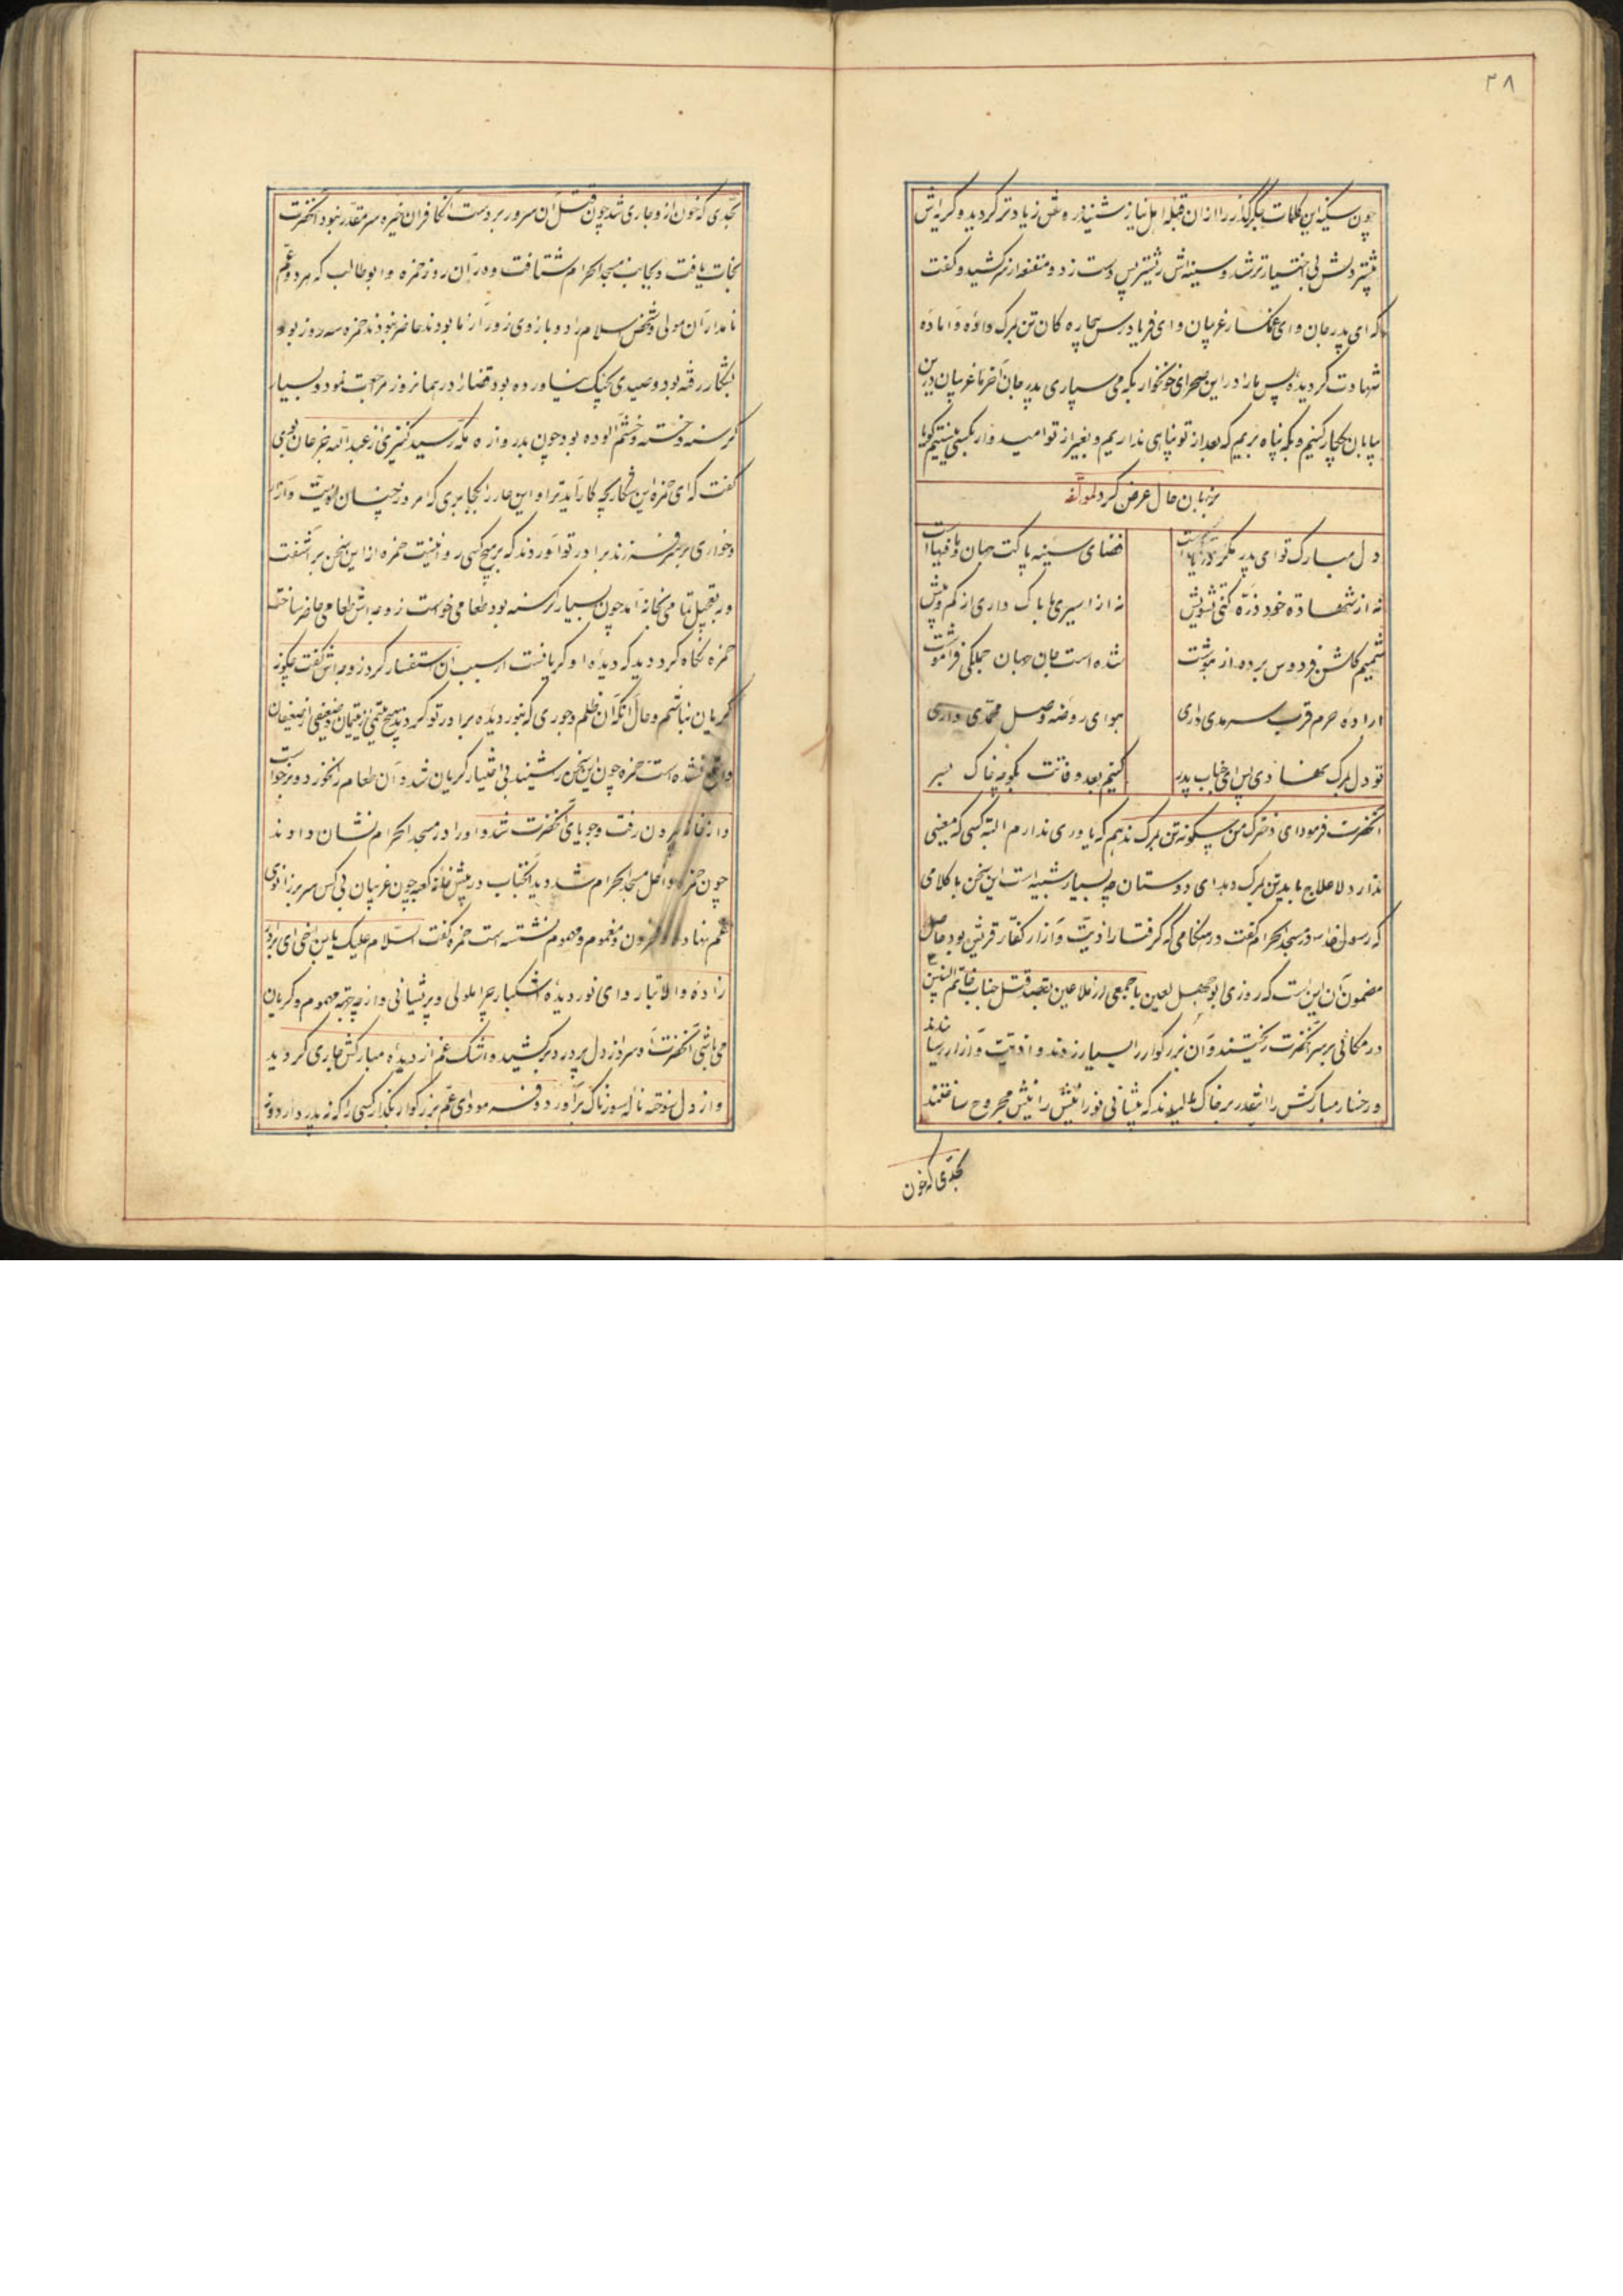 ۳۸
چون سکینه این کلمات جگرگداز را از ان قبله اهل نیاز شنید دردش زیادتر کردید و کریه‌اش
بیشتر دلش بی اختیارتر شد و سینه‌اش ریشتر پس دست زد و مقنعه از سر کشید و کفت
که ای پدر جان و ای غمکسار غریبان و ای فریادرس بیچاره کان تن بمرک داده و آماده
شهادت کردیده پس ما را در این صحرای خونخوار بکه می سپاری پدر جان آخر ما غریبان درین
بیابان چکار کنیم و بکه پناه بریم که بعد از تو پناهی نداریم و بغیر از تو امیدوار بکسی نیستیم کویا
بزبان حال عرض کرد لمولفه
دل مبارک تو ای پدر مکر
فضای سینه پاکت جهان
نه از شهادة خود ذرّه کنی تشویش
نه از اسیری ما باک داری از کم و بیش
شمیم کلشن فردوس برده از هوشت
شده است جان جهان جملکی فراموشت
اراده حرم قرب سرمدی داری
هوای روضه وصل محمّدی داری
تو دل بمرک نهادی پس ای جناب پدر
کنیم بعد وفاتت بکو چه خاک بسر
آنحضرت فرمود ای دخترک من چکونه تن بمرک ندهم که یاوری ندارم البته کسی که معینی
ندارد لاعلاج باید تن بمرک دهد ای دوستان چه بسیار شبیه است این سخن با کلامی
که رسول خدا در مسجد الحرام کفت در هنکامی که کرفتار اذیّت و آزار کفّار قریش بود حاصل
مضمون آن این است که روزی ابوجهل لعین با جمعی از ملاعین بقصد قتل جناب خاتم النبیین
در مکانی بر سر آنحضرت ریختند و آن بزرکوار را بسیار زدند و اذیّت و آزار رسانیدند
و رخسار مبارکش را انقدر بر خاک مالیدند که پیشانی نورانیش را نیش مجروح ساختند
بحدّی که خون
بحدّی که خون از و جاری شد چون قتل ان سرور بر دست آن کافران خیره سر مقدّر نبود آنحضرت
نجات یافت و بجانب مسجد الحرام شتافت و در آن روز حمزه و ابوطالب که هر دو عمّ
نامدار آن مولی و شخص اسلام را دو بازوی زورآزما بودند حاضر نبودند حمزه سه روز بود
بشکار رفته بود و صیدی بچنک نیاورده بود قضا را در همانروز مراجعت نمود و بسیار
کرسنه و خسته و خشم آلوده بود چون بدروازه مکّه رسید کنیزی از عبد الله جزعان بوی
کفت که ای حمزه این شکار بچه کار آید ترا و این عار را بکجا بری که امروز چنان اذیّت و آزار
و خواری بر سر فرزند برادر تو آوردند که بر هیچ کسی روا نیست حمزه از این سخن برآشفت
و بتعجیل تمام بخانه آمد چون بسیار کرسنه بود طعامی خواست زوجه‌اش طعامی حاضر ساخت
حمزه نکاه کرد دید که دیده او کریانست از سبب آن استفسار کرد زوجه‌اش کفت چکونه
کریان نباشم و حال آنکه ان ظلم و جوری که بنور دیده برادر تو کردند بهیچ یتیمی از یتیمان و ضعیفی از ضعیفان
واقع نشده است حمزه چون این سخن را شنید بی اختیار کریان شد و آن طعام را نخورد و برخواست
و از خانه بیرون رفت و جویای آنحضرت شد و او را در مسجد الحرام نشان دادند
چون حمزه داخل مسجد الحرام شد دید آنجناب در پیش خانه کعبه چون غریبان بی کس سر بر زانوی
غم نهاده و محزون و مغموم و مهموم نشسته است حمزه کفت السّلام علیک یابن اخی ای برادر
زاده والاتبار و ای نور دیده اشکبار چرا ملولی و پریشانی و از چه جهة مهموم و کریان
می باشی آنحضرت آه سرد از دل پر درد برکشید و اشک غم از دیده مبارکش جاری کردید
و از دل سوخته ناله سوزناک برآورد و فرمود ای عمّ بزرکوار بکذار کسی را که نه پدر دارد و نه